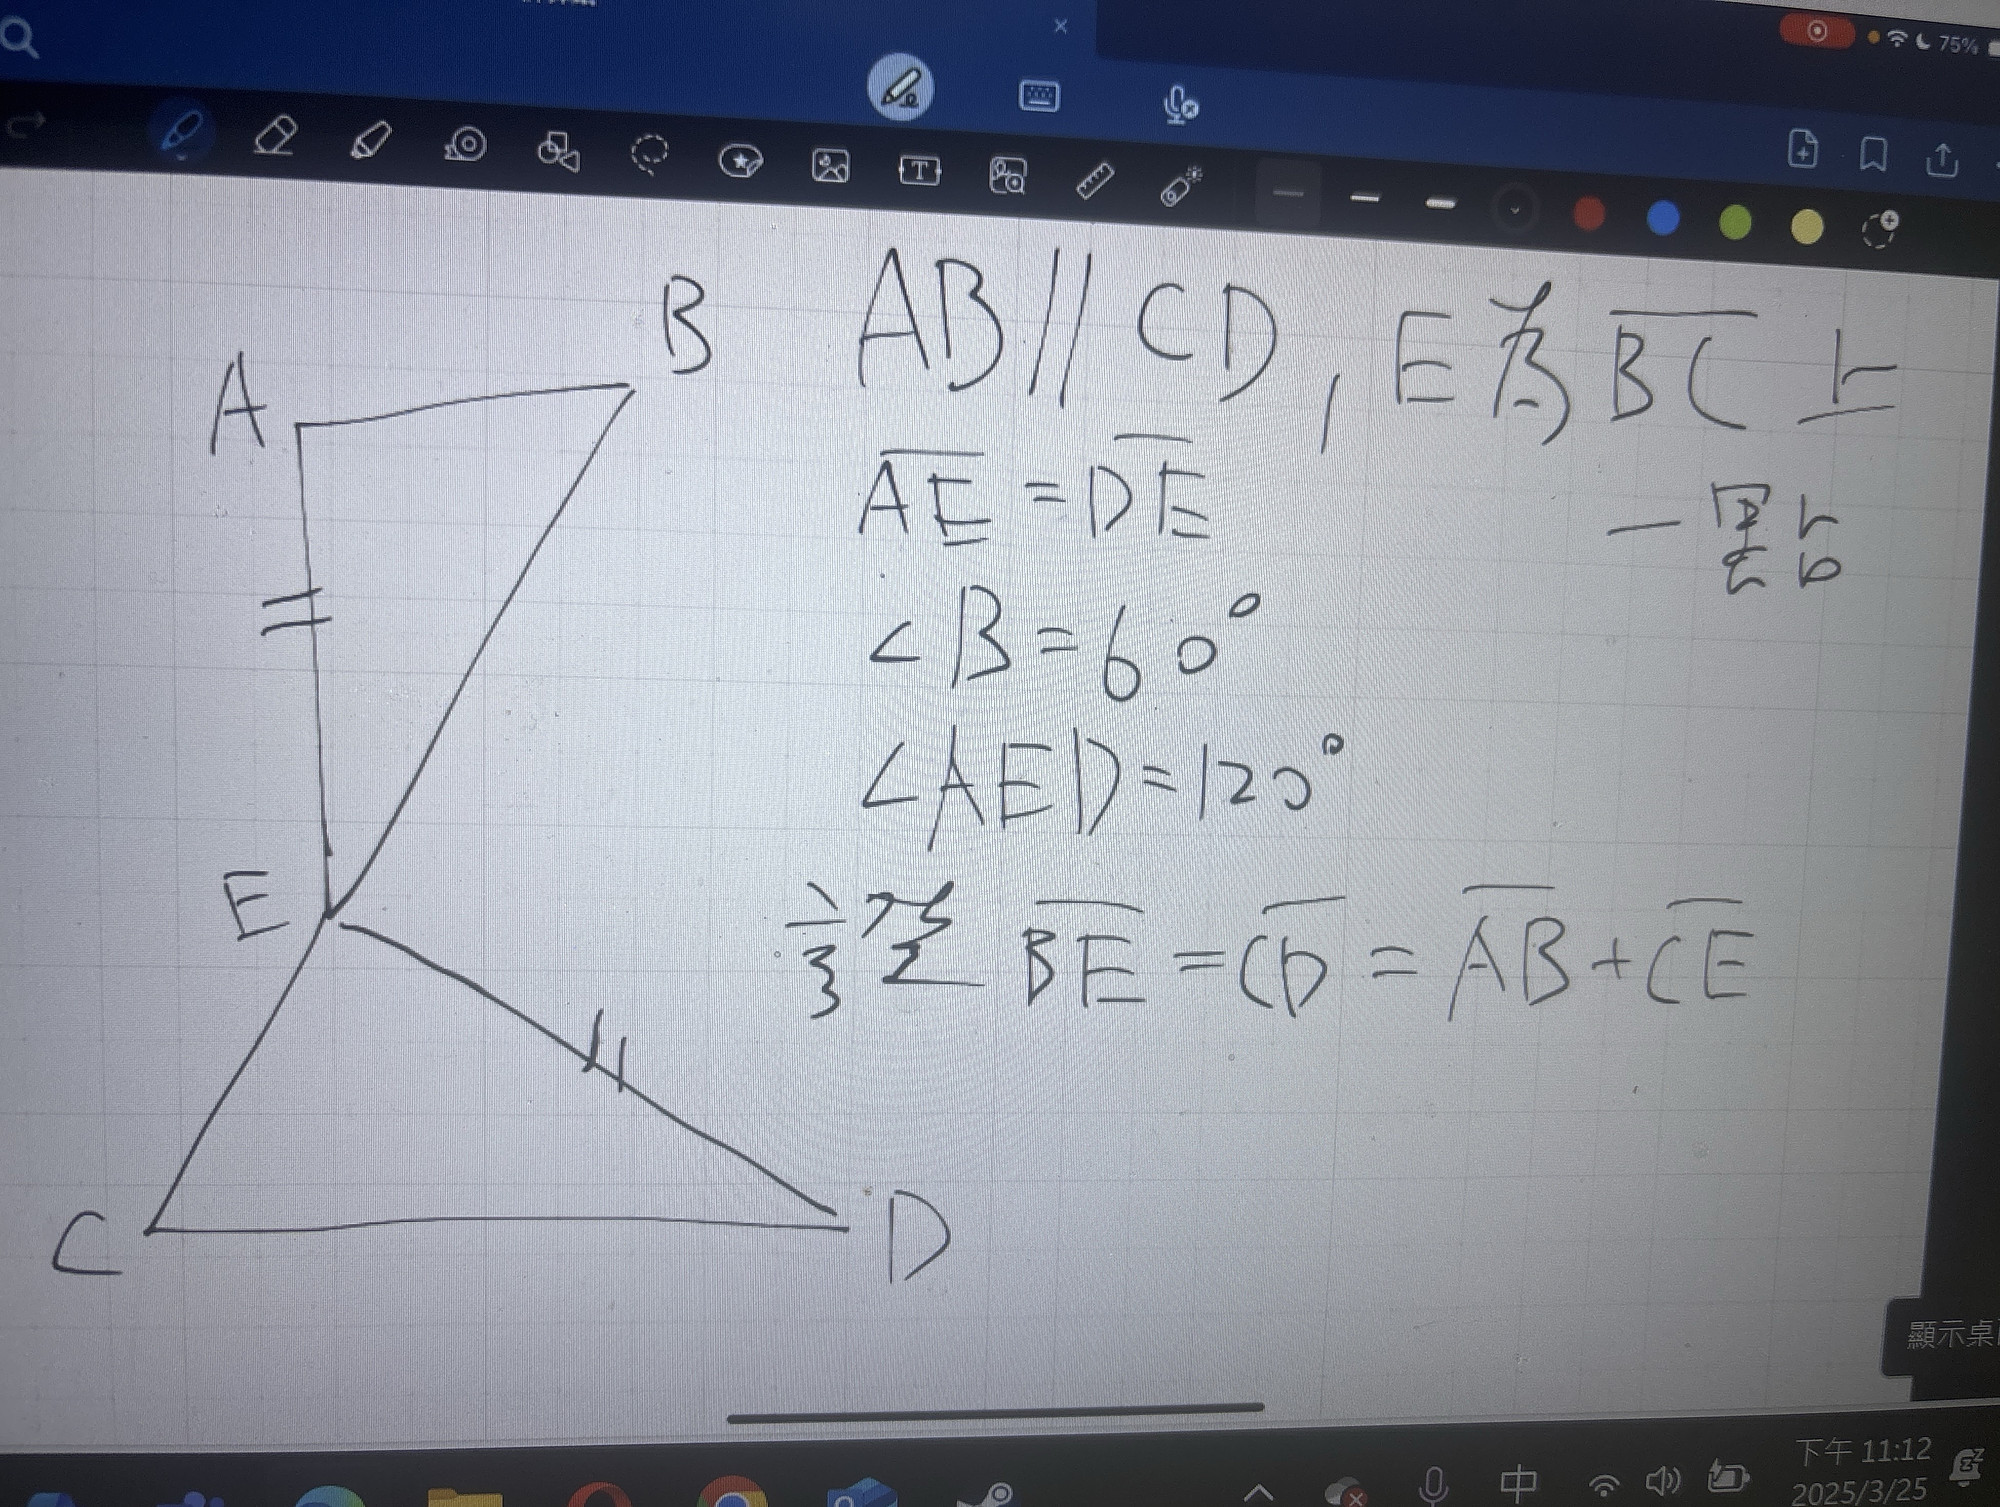 75%
T
B
AB // CD , E為BC上
A
AE = DE
一點
∠B=60°
∠AED=120°
E
試證 BE = CD = AB + CE
C
D
顯示桌
中
下午 11:12
2025/3/25